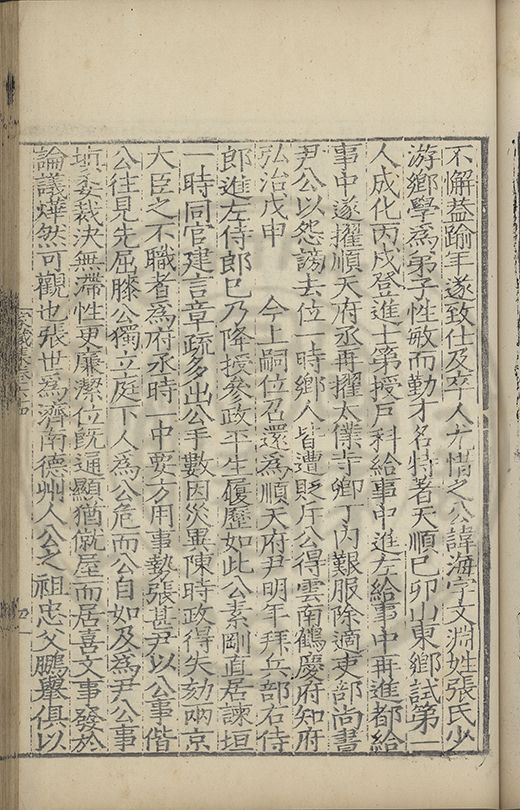 不懈益踰年遂致仕及卒人尤惜之公諱海字文淵姓張氏少
游鄉學為弟子性敏而勤才名特著天順巳卯山東鄉試第一
人成化丙戌登進士第授戶科給事中進左給事中再進都給
事中遂擢順天府丞再擢太僕寺卿丁内艱服除適吏部尚書
尹公以怨謗去位一時鄉人皆遭貶斥公得雲南鶴慶府知府
弘治戊申　今上嗣位召還為順天府尹明年拜兵部右侍
郎進左侍郎巳乃降授參政平生履歷如此公素剛直居諫垣
一時同官建言章疏多出公手數因災異陳時政得失劾兩京
大臣之不職者為府丞時一中要方用事勢張甚尹以公事偕
公往見先屈膝公獨立庭下人為公危而公自如及為尹公事
填委裁決無滯性更廉潔位既通顯猶僦屋而居喜文事發於
論議燁然可觀也張世為濟南德州人公之祖忠父鵬舉俱以